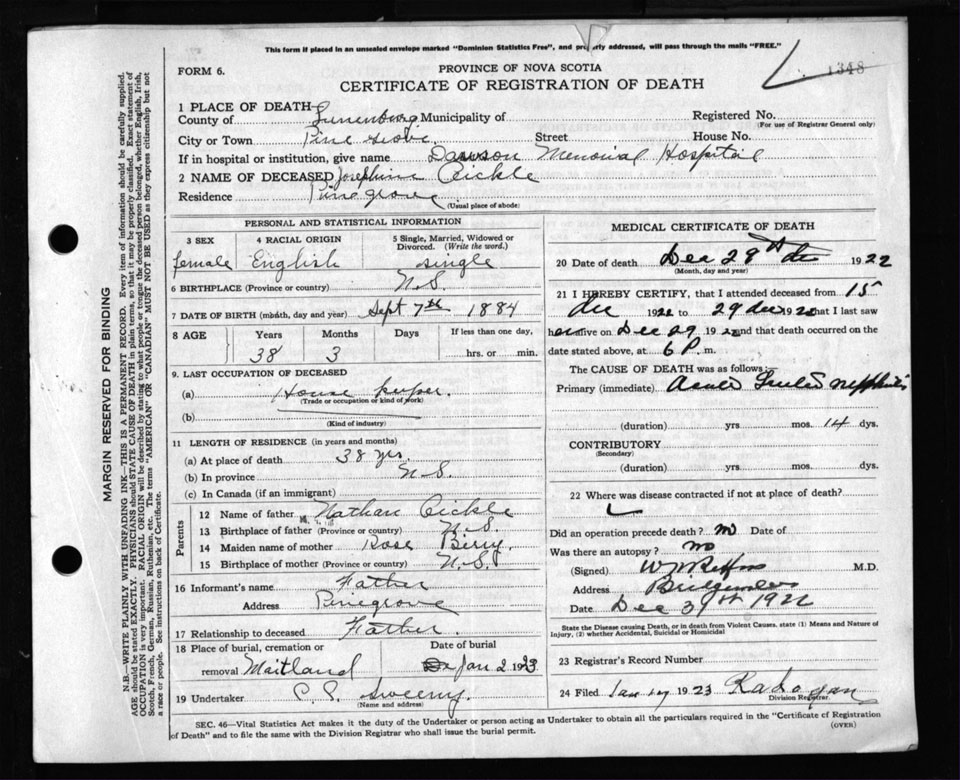 This form if placed in an unsealed envelope marked "Dominion Statistics Free", and properly addressed, will pass through the mails "FREE."
1348
FORM 6.
PROVINCE OF NOVA SCOTIA
CERTIFICATE OF REGISTRATION OF DEATH
1 PLACE OF DEATH
County of Lunenburg Municipality of Registered No.
(For use of Registrar General only)
City or Town Pine Grove Street House No.
If in hospital or institution, give name Dawson Memorial Hospital
2 NAME OF DECEASED Josephine Eickle
Residence Pine grove
(Usual place of abode)
PERSONAL AND STATISTICAL INFORMATION
3 SEX 4 RACIAL ORIGIN 5 Single, Married, Widowed or Divorced. (Write the word.)
female English single
6 BIRTHPLACE (Province or country) N.S.
7 DATE OF BIRTH (month, day and year) Sept 7th 1884
8 AGE Years Months Days If less than one day,
38 3 hrs. or min.
9. LAST OCCUPATION OF DECEASED
(a) House keeper
(Trade or occupation or kind of work)
(b)
(Kind of industry)
11 LENGTH OF RESIDENCE (in years and months)
(a) At place of death 38 yrs.
(b) In province N.S.
(c) In Canada (if an immigrant)
Parents
12 Name of father Nathan Eickle
13 Birthplace of father (Province or country) N.S.
14 Maiden name of mother Rose Birry
15 Birthplace of mother (Province or country) N.S.
16 Informant's name Father
Address Pinegrove
17 Relationship to deceased Father.
18 Place of burial, cremation or Date of burial
removal Maitland Jan 2 1923
19 Undertaker Sweeny.
(Name and address)
MEDICAL CERTIFICATE OF DEATH
20 Date of death Dec 29th 1922
(Month, day and year)
21 I HEREBY CERTIFY, that I attended deceased from 15
dec 1922 to 29 dec 1922 that I last saw
her alive on Dec 29 1922 and that death occurred on
date stated above, at 6 P. m.
The CAUSE OF DEATH was as follows:
Primary (immediate) Acute nephritis
(duration) yrs. mos. 14 dys.
CONTRIBUTORY
(Secondary)
(duration) yrs. mos. dys.
22 Where was disease contracted if not at place of death?
Did an operation precede death? no Date of
Was there an autopsy? no
(Signed) M.D.
Address Bridgewater
Date Dec 31st 1922
State the Disease causing Death, or in death from Violent Causes, state (1) Means and Nature of
Injury, (2) whether Accidental, Suicidal or Homicidal
23 Registrar's Record Number
24 Filed Jan 1923
Division Registrar.
SEC. 46—Vital Statistics Act makes it the duty of the Undertaker or person acting as Undertaker to obtain all the particulars required in the "Certificate of Registration
of Death" and to file the same with the Division Registrar who shall issue the burial permit.
(OVER)
MARGIN RESERVED FOR BINDING
N.B.—WRITE PLAINLY WITH UNFADING INK—THIS IS A PERMANENT RECORD. Every item of information should be carefully supplied.
AGE should be stated EXACTLY. PHYSICIANS should STATE CAUSE OF DEATH in plain terms, so that it may be properly classified. Exact statement of
OCCUPATION is very important. RACIAL ORIGIN will be described by stating to what people or tongue the deceased person belonged, whether English, Irish,
Scotch, French, German, Russian, Ruthenian, etc. The terms "AMERICAN" OR "CANADIAN" MUST NOT BE USED as they express citizenship but not
a race or people. See instructions on back of Certificate.